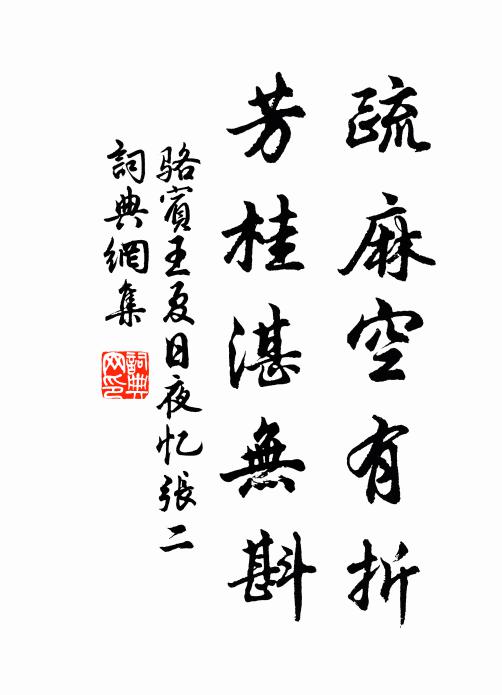 疏麻空有折
芳桂湛無斟
駱賓王夏日夜忆張二
詞典網集
詞典網印